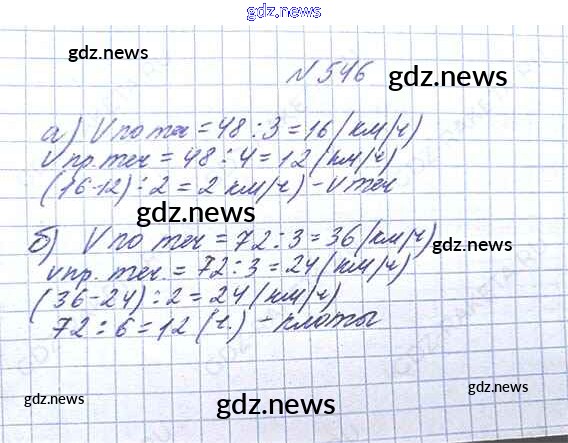 gdz.news
gdz.news
N 546
gdz.news
а) V по теч = 48 : 3 = 16 (км/ч)
V пр. теч = 48 : 4 = 12 (км/ч)
(16-12) : 2 = 2 км/ч) - V теч
gdz.news
б) V по теч = 72 : 3 = 36 (км/ч)
gdz.news
V пр. теч. = 72 : 3 = 24 (км/ч)
(36-24) : 2 = 24 (км/ч)
72 : 6 = 12 (ч.) - плоты
gdz.news
gdz.news
gdz.news